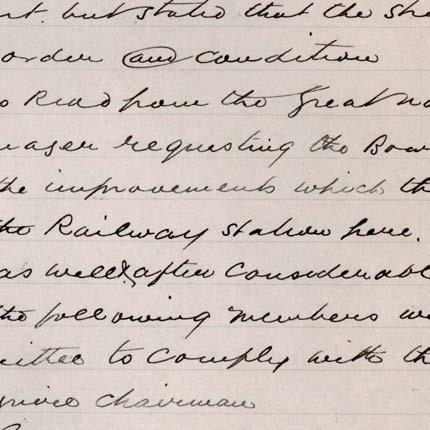 but stated that the
order and condition
Read from the Great No
nager requesting the Boar
the improvements which th
the Railway station here.
as well & after considerabl
the following members we
mittee to comply with th
vice chairman